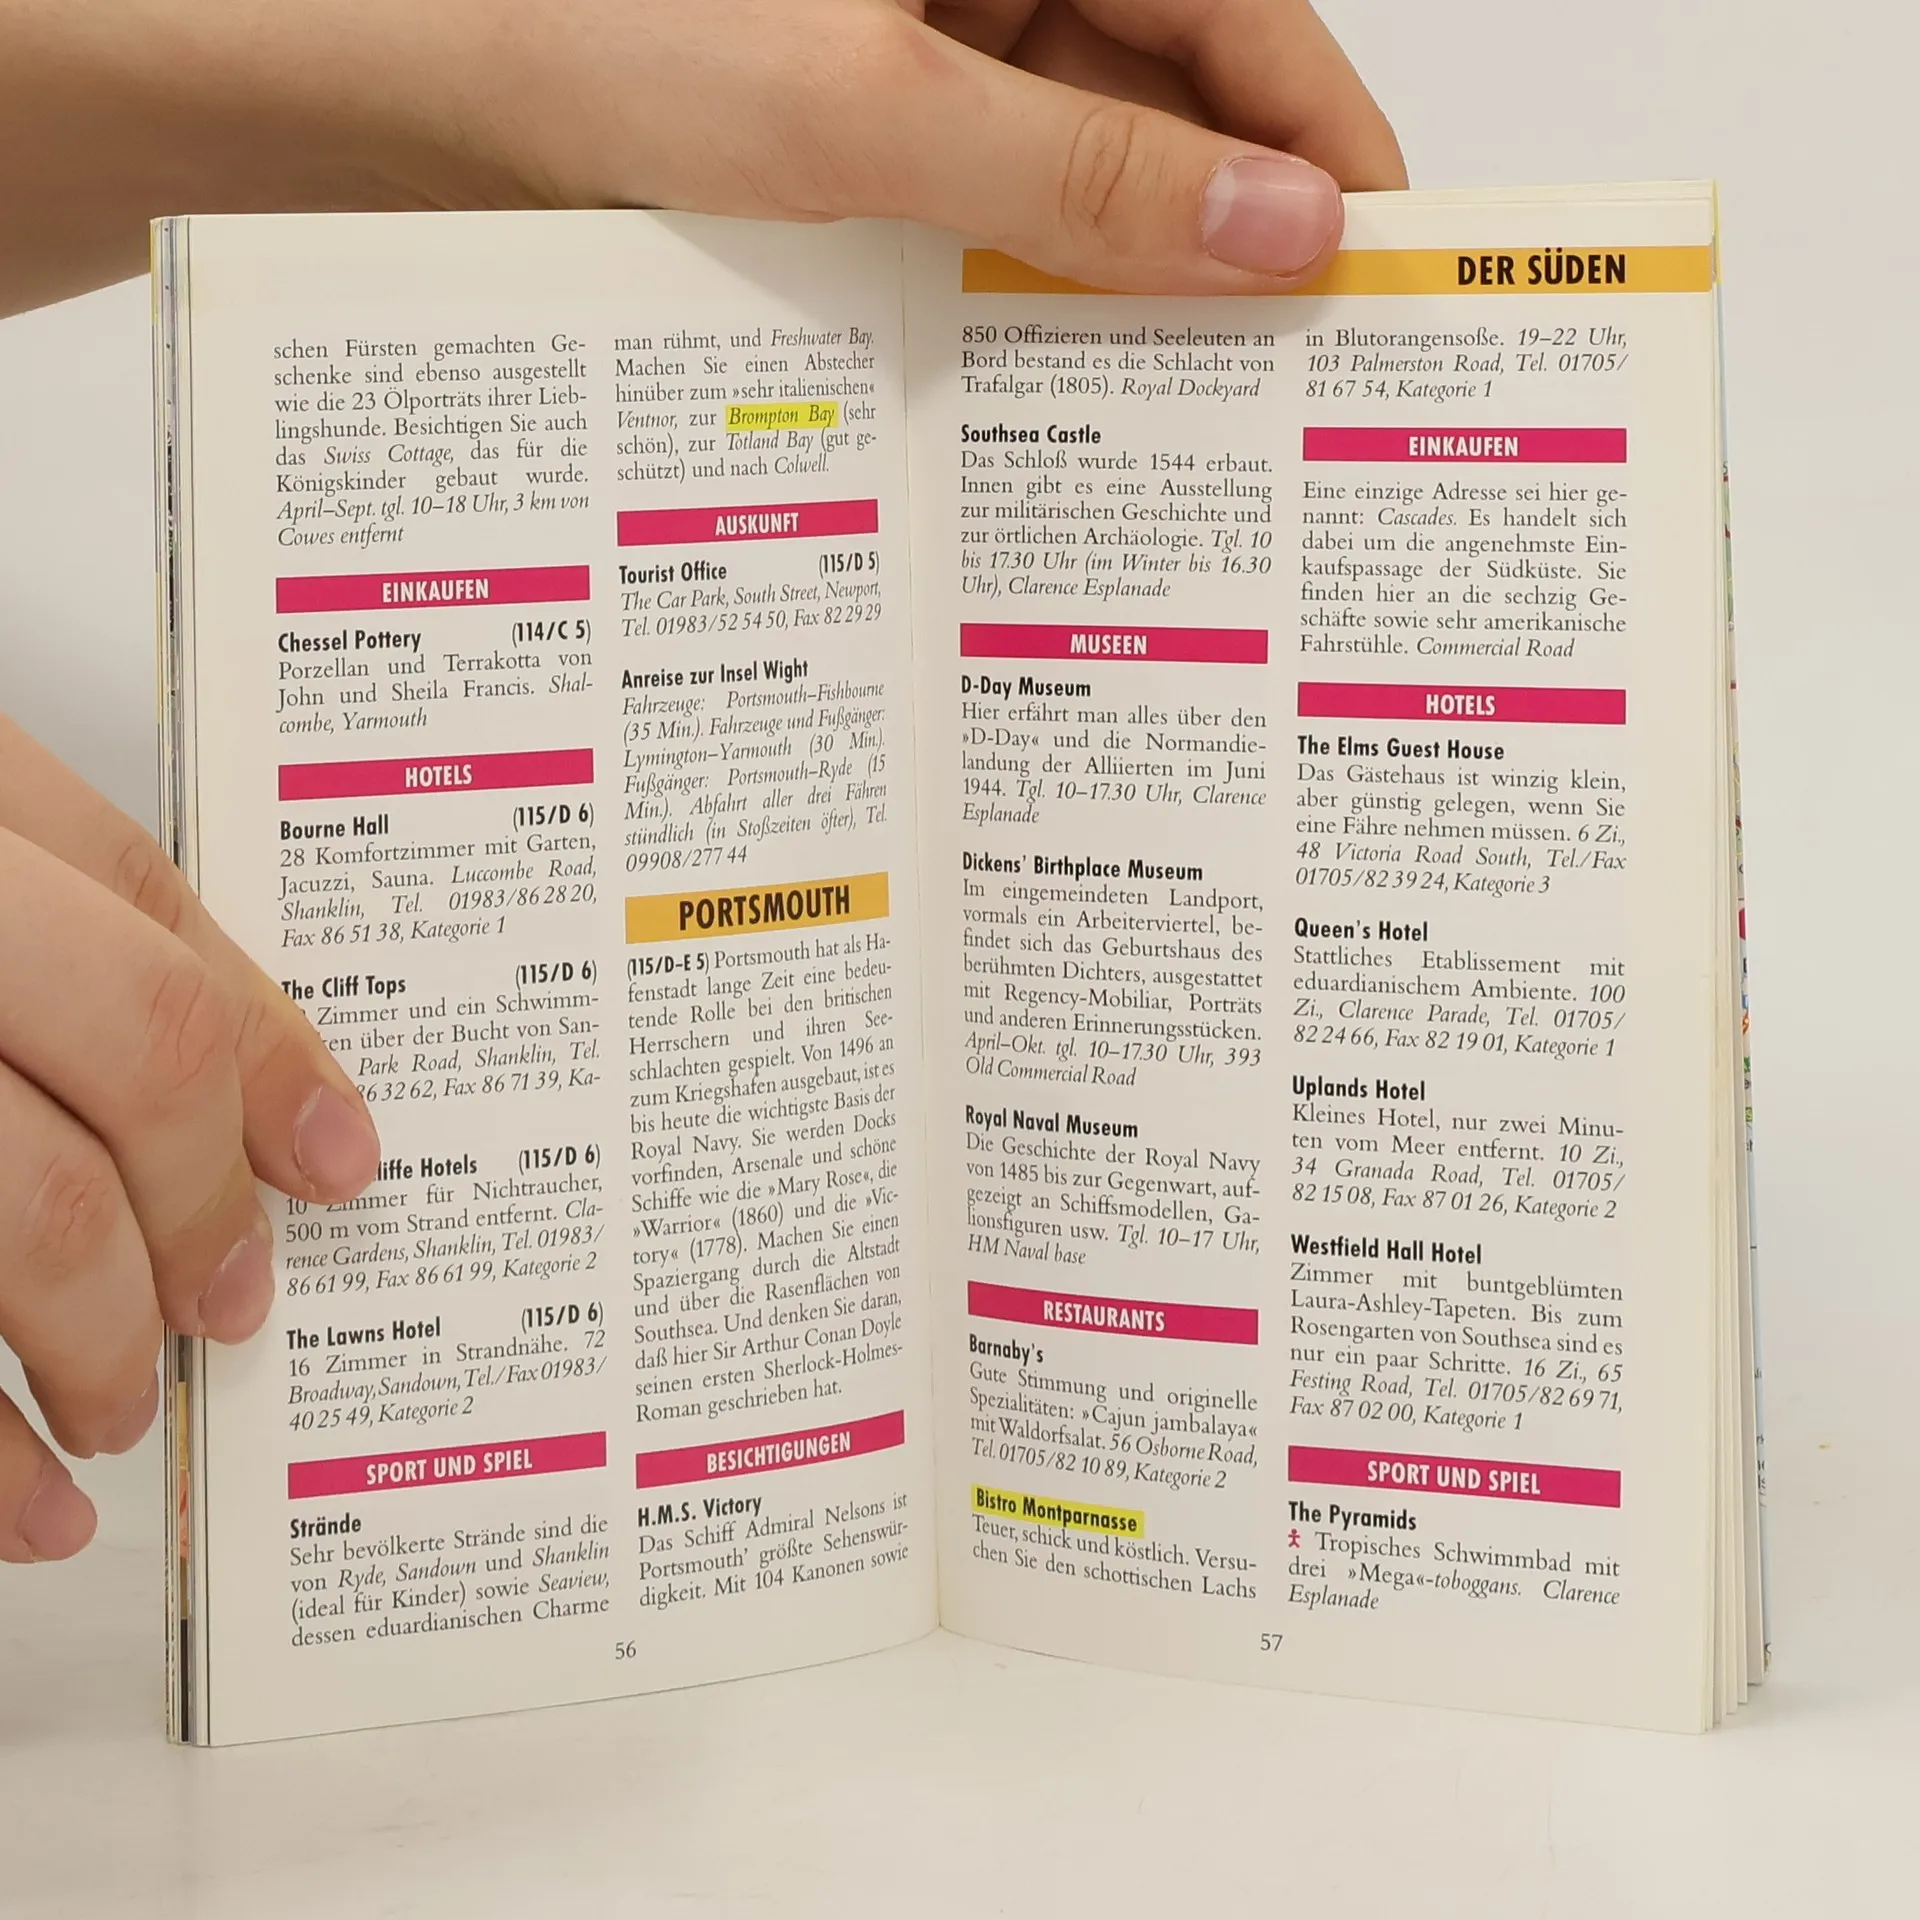 schen Fürsten gemachten Ge-
schenke sind ebenso ausgestellt
wie die 23 Ölporträts ihrer Lieb-
lingshunde. Besichtigen Sie auch
das Swiss Cottage, das für die
Königskinder gebaut wurde.
April–Sept. tgl. 10–18 Uhr, 3 km von
Cowes entfernt
EINKAUFEN
Chessel Pottery (114/C 5)
Porzellan und Terrakotta von
John und Sheila Francis. Shal-
combe, Yarmouth
HOTELS
Bourne Hall (115/D 6)
28 Komfortzimmer mit Garten,
Jacuzzi, Sauna. Luccombe Road,
Shanklin, Tel. 01983/86 28 20,
Fax 86 51 38, Kategorie 1
The Cliff Tops (115/D 6)
Zimmer und ein Schwimm-
über der Bucht von San-
Park Road, Shanklin, Tel.
63262, Fax 86 71 39, Ka-
Hotels (115/D 6)
10 Zimmer für Nichtraucher,
500 m vom Strand entfernt. Cla-
rence Gardens, Shanklin, Tel. 01983/
86 61 99, Fax 86 61 99, Kategorie 2
The Lawns Hotel (115/D 6)
16 Zimmer in Strandnähe. 72
Broadway, Sandown, Tel./Fax 01983/
40 25 49, Kategorie 2
SPORT UND SPIEL
Strände
Sehr bevölkerte Strände sind die
von Ryde, Sandown und Shanklin
(ideal für Kinder) sowie Seaview,
dessen eduardianischen Charme
man rühmt, und Freshwater Bay.
Machen Sie einen Abstecher
hinüber zum »sehr italienischen«
Ventnor, zur Brompton Bay (sehr
schön), zur Totland Bay (gut ge-
schützt) und nach Colwell.
AUSKUNFT
Tourist Office (115/D 5)
The Car Park, South Street, Newport,
Tel. 01983/52 54 50, Fax 82 29 29
Anreise zur Insel Wight
Fahrzeuge: Portsmouth–Fishbourne
(35 Min.). Fahrzeuge und Fußgänger:
Lymington–Yarmouth (30 Min.).
Fußgänger: Portsmouth–Ryde (15
Min.). Abfahrt aller drei Fähren
stündlich (in Stoßzeiten öfter), Tel.
09908/277 44
PORTSMOUTH
(115/D–E 5) Portsmouth hat als Ha-
fenstadt lange Zeit eine bedeu-
tende Rolle bei den britischen
Herrschern und ihren See-
schlachten gespielt. Von 1496 an
zum Kriegshafen ausgebaut, ist es
bis heute die wichtigste Basis der
Royal Navy. Sie werden Docks
vorfinden, Arsenale und schöne
Schiffe wie die »Mary Rose«, die
»Warrior« (1860) und die »Vic-
tory« (1778). Machen Sie einen
Spaziergang durch die Altstadt
und über die Rasenflächen von
Southsea. Und denken Sie daran,
daß hier Sir Arthur Conan Doyle
seinen ersten Sherlock-Holmes-
Roman geschrieben hat.
BESICHTIGUNGEN
H.M.S. Victory
Das Schiff Admiral Nelsons ist
Portsmouth' größte Sehenswür-
digkeit. Mit 104 Kanonen sowie
56
DER SÜDEN
850 Offizieren und Seeleuten an
Bord bestand es die Schlacht von
Trafalgar (1805). Royal Dockyard
Southsea Castle
Das Schloß wurde 1544 erbaut.
Innen gibt es eine Ausstellung
zur militärischen Geschichte und
zur örtlichen Archäologie. Tgl. 10
bis 17.30 Uhr (im Winter bis 16.30
Uhr), Clarence Esplanade
MUSEEN
D-Day Museum
Hier erfährt man alles über den
»D-Day« und die Normandie-
landung der Alliierten im Juni
1944. Tgl. 10–17.30 Uhr, Clarence
Esplanade
Dickens' Birthplace Museum
Im eingemeindeten Landport,
vormals ein Arbeiterviertel, be-
findet sich das Geburtshaus des
berühmten Dichters, ausgestattet
mit Regency-Mobiliar, Porträts
und anderen Erinnerungsstücken.
April–Okt. tgl. 10–17.30 Uhr, 393
Old Commercial Road
Royal Naval Museum
Die Geschichte der Royal Navy
von 1485 bis zur Gegenwart, auf-
gezeigt an Schiffsmodellen, Ga-
lionsfiguren usw. Tgl. 10–17 Uhr,
HM Naval base
RESTAURANTS
Barnaby's
Gute Stimmung und originelle
Spezialitäten: »Cajun jambalaya«
mit Waldorfsalat. 56 Osborne Road,
Tel. 01705/82 10 89, Kategorie 2
Bistro Montparnasse
Teuer, schick und köstlich. Versu-
chen Sie den schottischen Lachs
in Blutorangensoße. 19–22 Uhr,
103 Palmerston Road, Tel. 01705/
81 67 54, Kategorie 1
EINKAUFEN
Eine einzige Adresse sei hier ge-
nannt: Cascades. Es handelt sich
dabei um die angenehmste Ein-
kaufspassage der Südküste. Sie
finden hier an die sechzig Ge-
schäfte sowie sehr amerikanische
Fahrstühle. Commercial Road
HOTELS
The Elms Guest House
Das Gästehaus ist winzig klein,
aber günstig gelegen, wenn Sie
eine Fähre nehmen müssen. 6 Zi.,
48 Victoria Road South, Tel./Fax
01705/82 39 24, Kategorie 3
Queen's Hotel
Stattliches Etablissement mit
eduardianischem Ambiente. 100
Zi., Clarence Parade, Tel. 01705/
82 24 66, Fax 82 19 01, Kategorie 1
Uplands Hotel
Kleines Hotel, nur zwei Minu-
ten vom Meer entfernt. 10 Zi.,
34 Granada Road, Tel. 01705/
82 15 08, Fax 87 01 26, Kategorie 2
Westfield Hall Hotel
Zimmer mit buntgeblümten
Laura-Ashley-Tapeten. Bis zum
Rosengarten von Southsea sind es
nur ein paar Schritte. 16 Zi., 65
Festing Road, Tel. 01705/82 69 71,
Fax 87 02 00, Kategorie 1
SPORT UND SPIEL
The Pyramids
Tropisches Schwimmbad mit
drei »Mega«-toboggans. Clarence
Esplanade
57